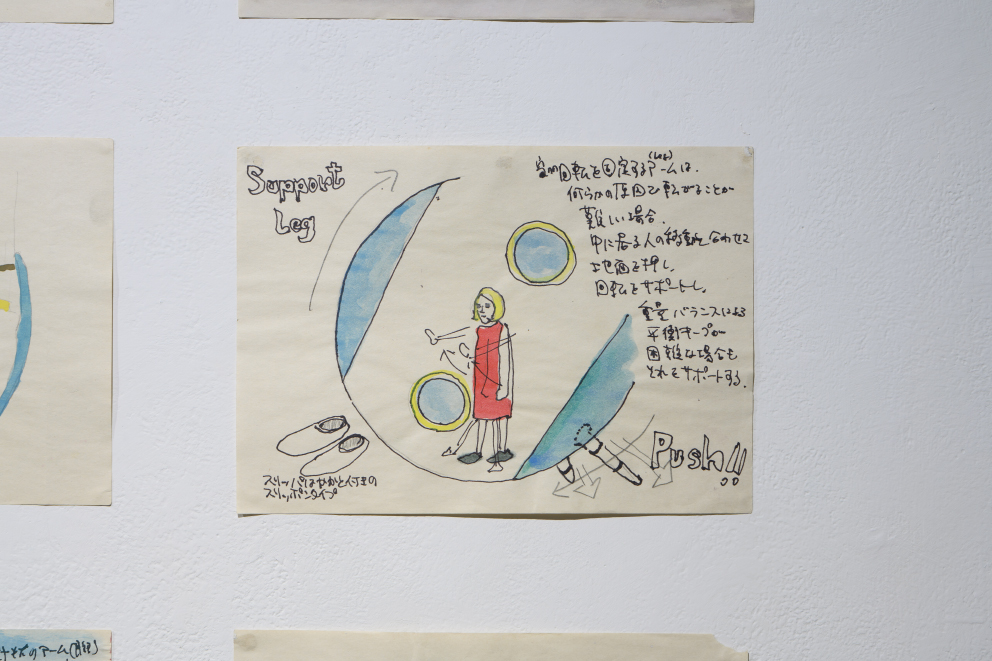 Support
Leg
(Leg)
空間回転を固定するアームは、
何らかの原因で転がることが
難しい場合、
中に居る人の移動に合わせて
地面を押し、
回転をサポートし、
重量バランスによる
平衡キープが
困難な場合も
それをサポートする。
Push!!
スリッパはかかと付きの
スリッポンタイプ
のアーム